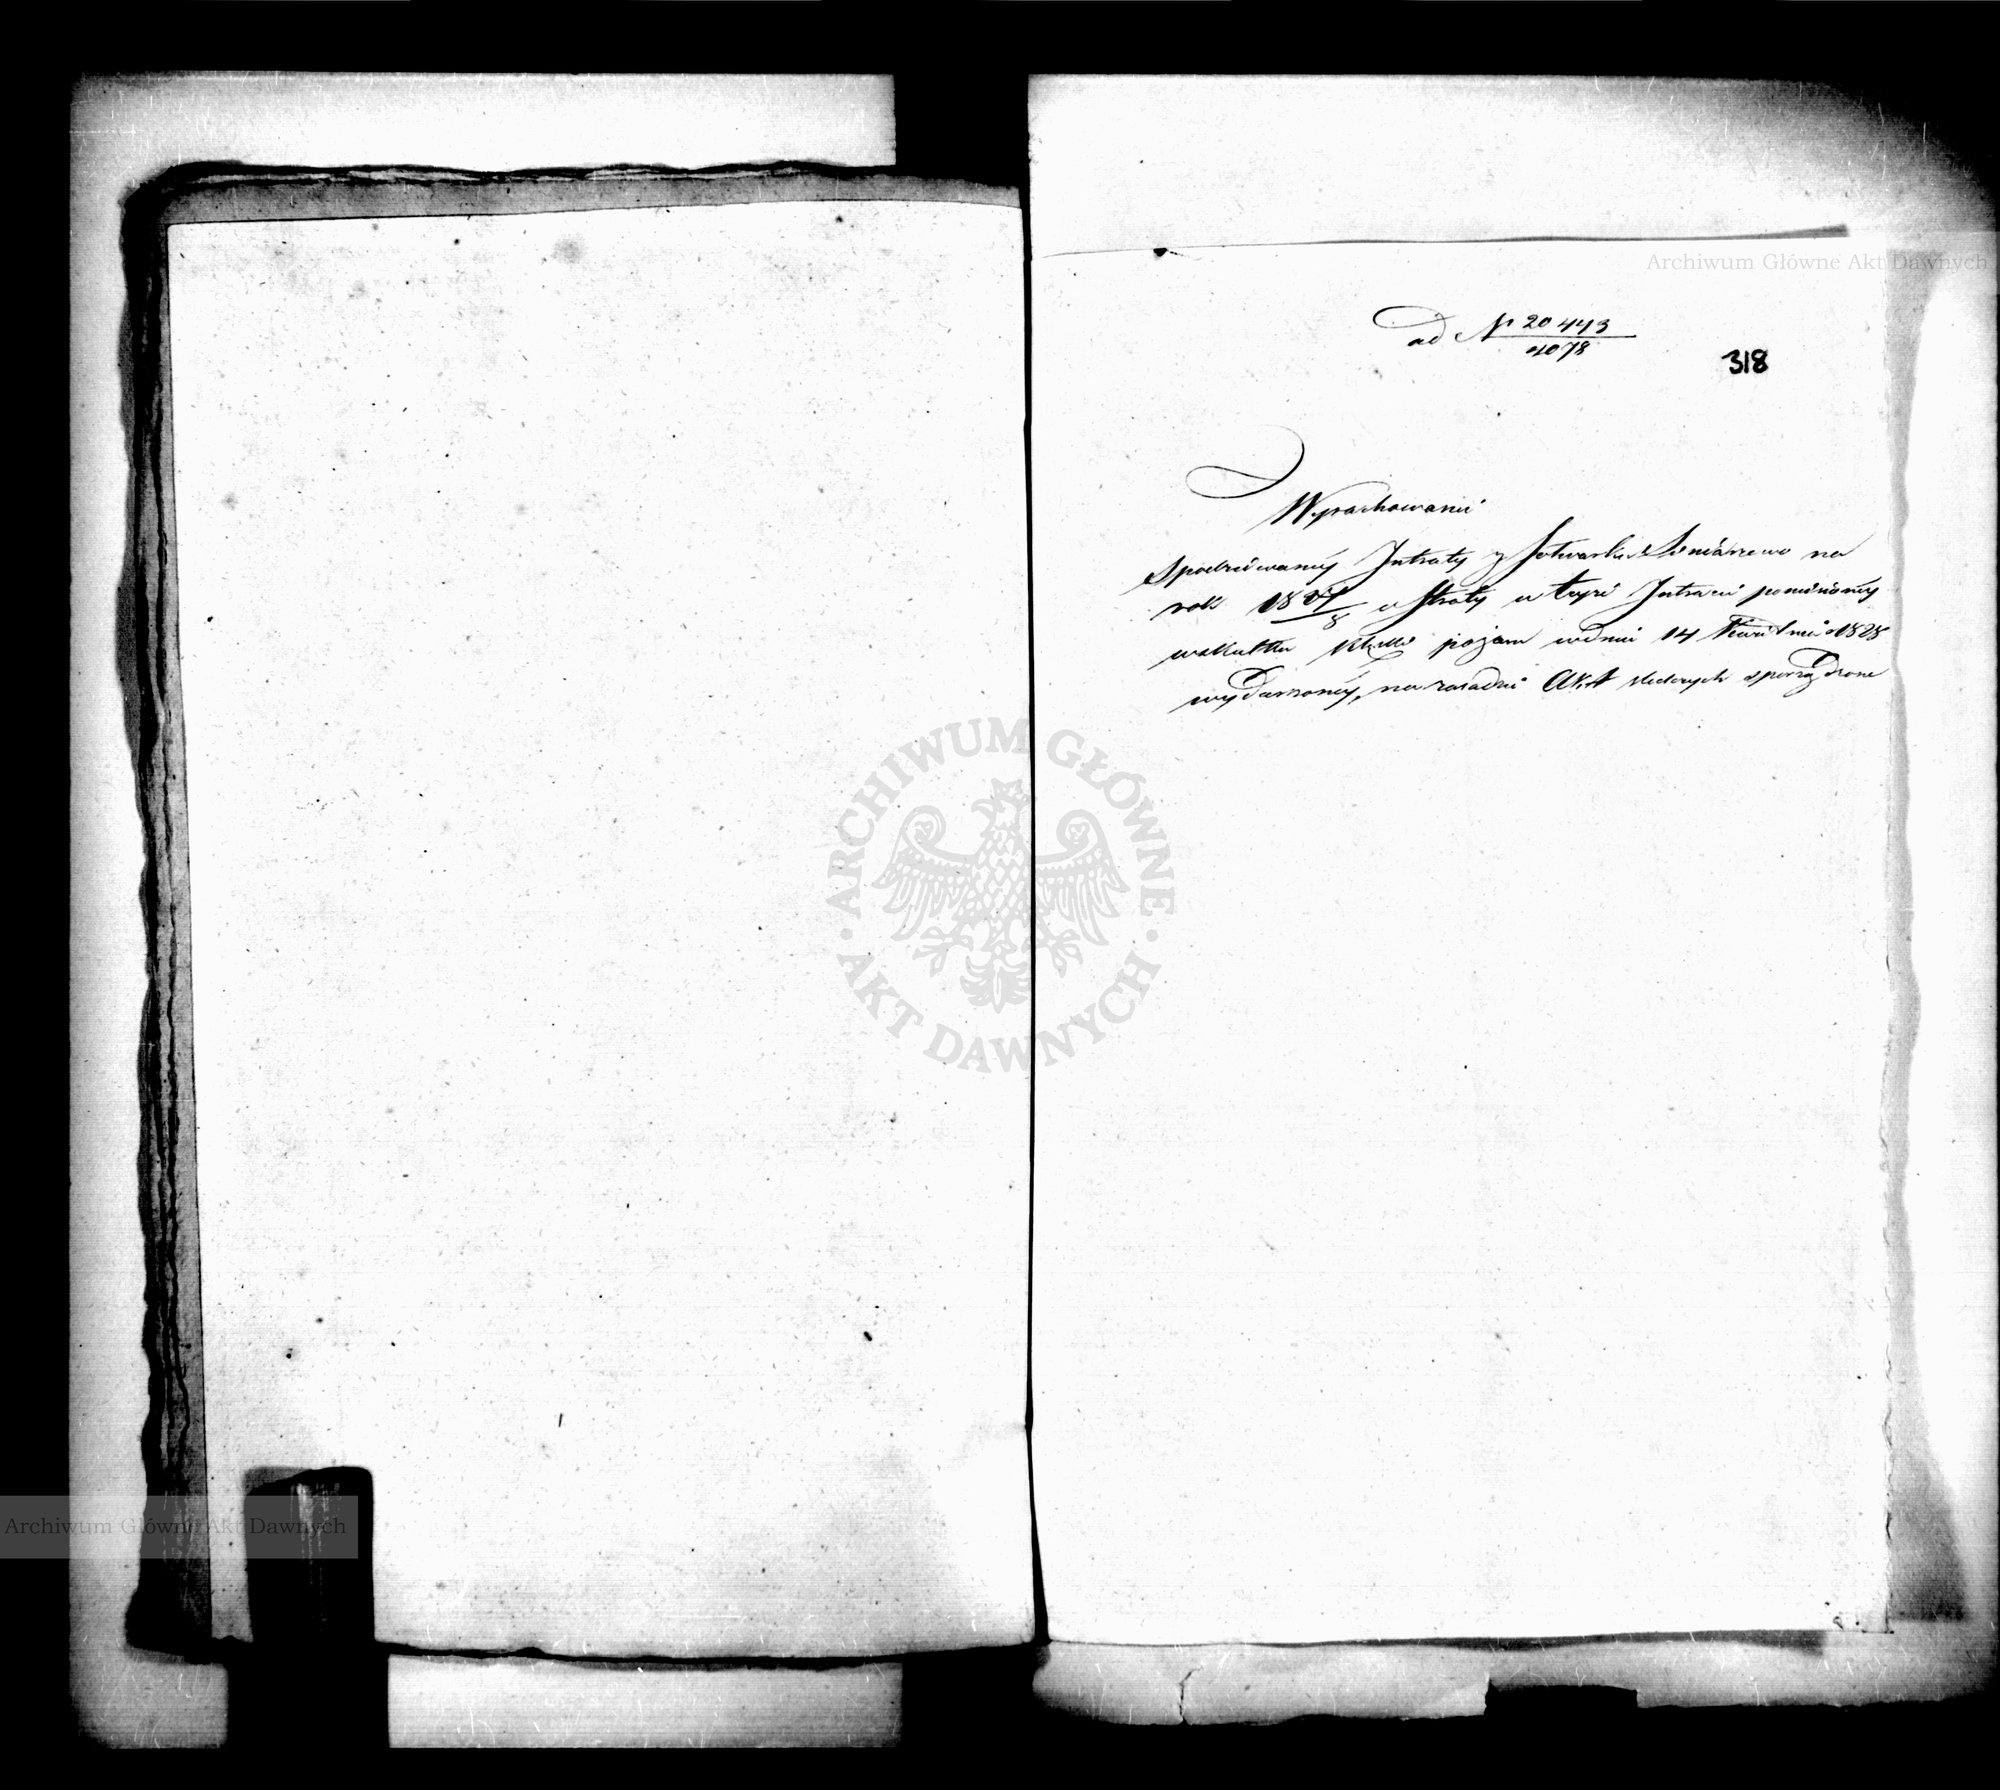 Archiwum Główne Akt Dawnych
ad N 20443
4078
318
Wyrachowanie
Spodziewanéy Intraty z folwarku na
rok 1827/8 i Straty w teyże Intracie poniesionéy
wskutku klęski pożaru w dniu 14 Kwietnia 1828
wydarzonéy, na zasadzie Akt śledczych sporządzone
ARCHIWUM GŁÓWNE
AKT DAWNYCH
Archiwum Główne Akt Dawnych